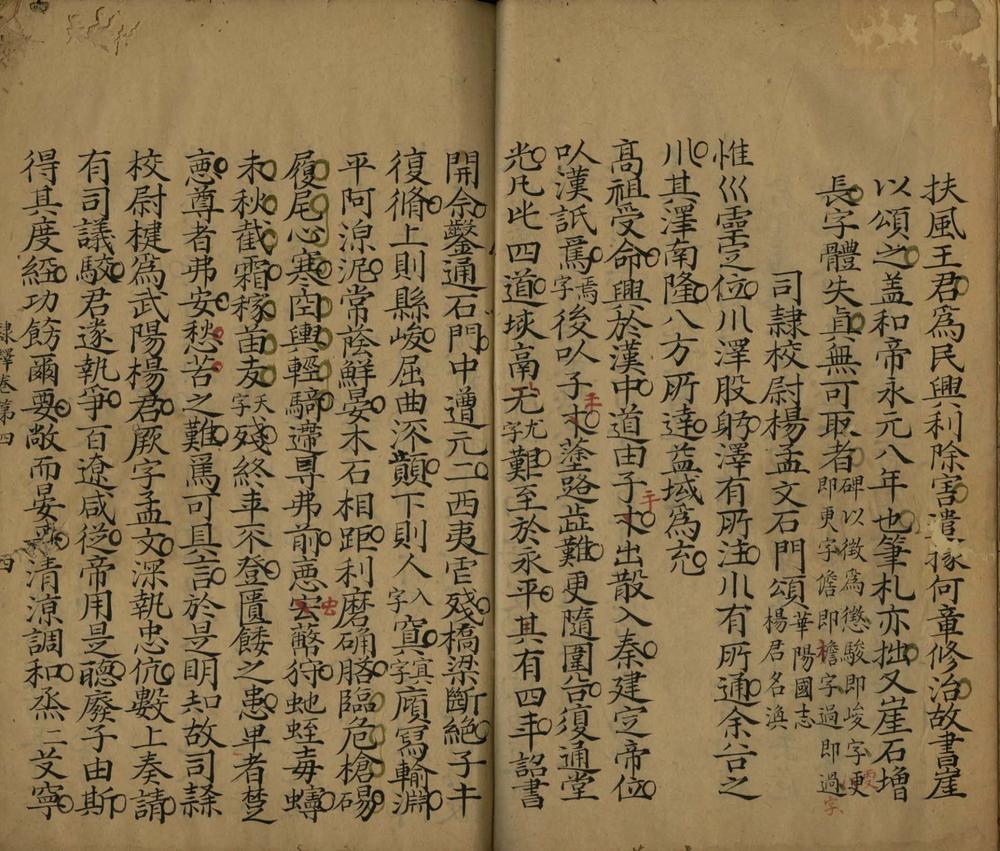 扶風王君為民興利除害遣掾何童修治故書崖
以頌之盖和帝永元八年也筆札亦拙又崖石增
長字體失真無可取者碑以徴為懲駿即峻字更即更字儋即檐字過即過字
司隷校尉楊孟文石門頌華陽國志楊君名渙
惟巛靈㝎位川澤股躬澤有所注川有所通余谷之
川其澤南隆八方所達益域為充
高祖受命興於漢中道由子午出散入秦建㝎帝位
以漢詆焉焉字後以子午塗路歮難更隨圍谷復通堂
光凡此四道垓鬲尤尤字難至於永平其有四年詔書
開余鑿通石門中遭元二西夷虐殘橋梁斷絶子午
復脩上則縣峻屈曲㳅顛下則人入字寘冥字庼寫輸淵
平阿湶泥常蔭鮮晏木石相距利磨确胳臨危槍碭
履尾心寒空輿輕騎遰㝵弗前惡虫蔽狩虵蛭毒蟃
未秋截霜稼苗夭夭字殘終年不登匱餧之患卑者楚
惡尊者弗安愁苦之難焉可具言於是明知故司隷
校尉楗為武陽楊君厥字孟文深執忠伉數上奏請
有司議駮君遂執爭百遼咸從帝用是聽廢子由斯
得其度經功飭爾要敞而晏平清涼調和烝二艾寧
隷釋卷第四
四